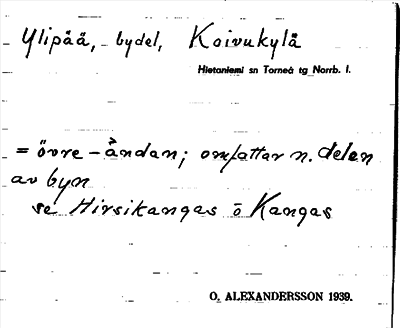 Ylipää, bydel, Koivukylä
Hietaniemi sn Torneå tg Norrb. l.
= övre-ändan; omfattar n. delen
av byn
se Hirsikangas o Kangas
O. ALEXANDERSSON 1939.